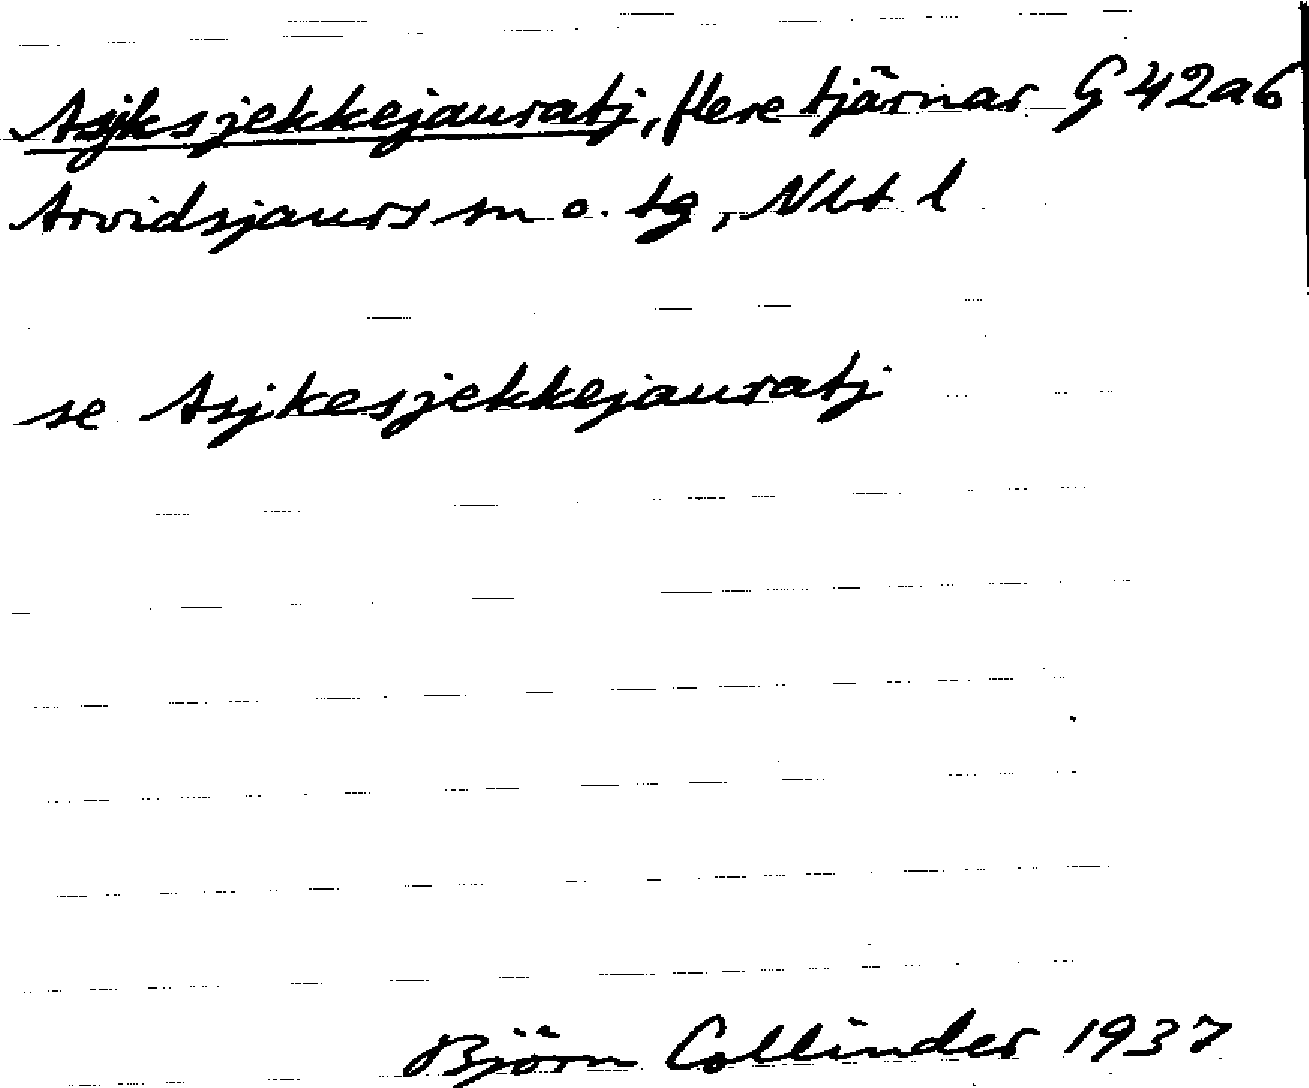 Asjksjekkejauratj, flere tjärnar G 42a6
Arvidsjaurs sn o. tg, Nbt l
se Asjkesjekkejauratj
Björn Collinder 1937